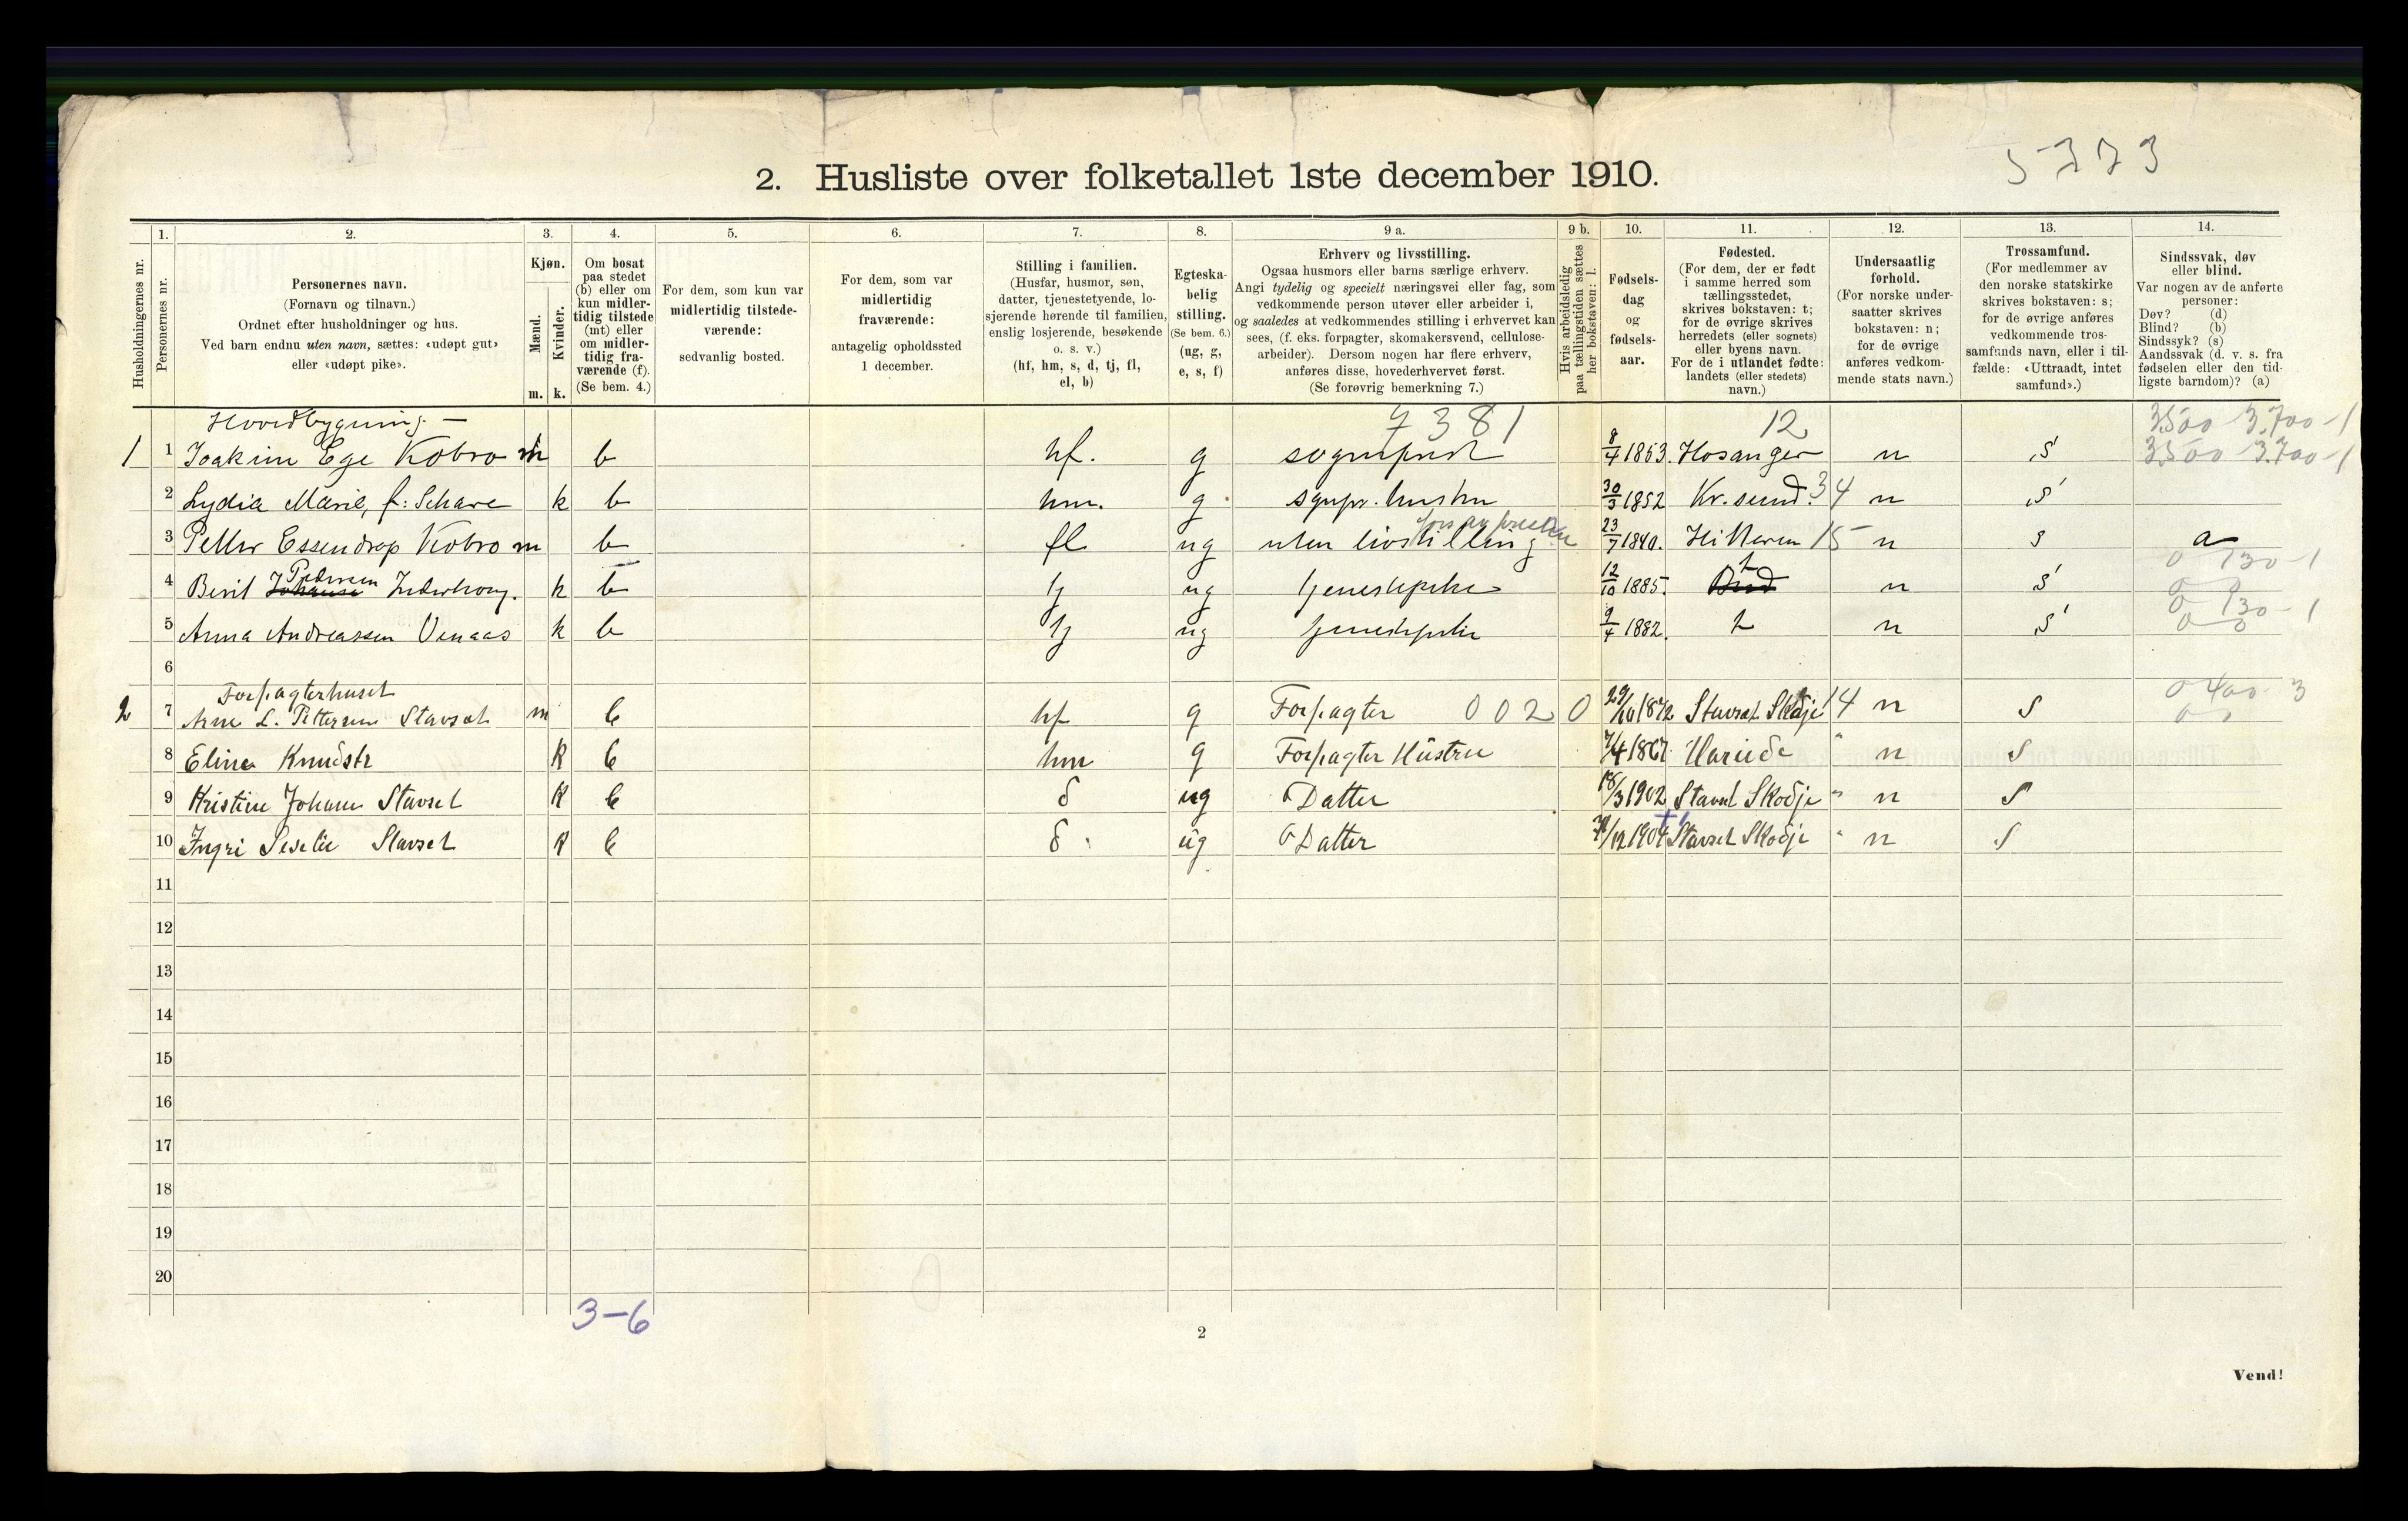 5773
2. Husliste over folketallet 1ste december 1910.
Husholdningernes nr.
1.
Personernes nr.
2.
Personernes navn.
(Fornavn og tilnavn.)
Ordnet efter husholdninger og hus.
Ved barn endnu uten navn, sættes: «udøpt gut»
eller «udøpt pike».
3.
Kjøn.
Mænd.
Kvinder.
m. k.
4.
Om bosat
paa stedet
(b) eller om
kun midler-
tidig tilstede
(mt) eller
om midler-
tidig fra-
værende (f).
(Se bem. 4.)
5.
For dem, som kun var
midlertidig tilstede-
værende:
sedvanlig bosted.
6.
For dem, som var
midlertidig
fraværende:
antagelig opholdssted
1 december.
7.
Stilling i familien.
(Husfar, husmor, søn,
datter, tjenestetyende, lo-
sjerende hørende til familien,
enslig losjerende, besøkende
o. s. v.)
(hf, hm, s, d, tj, fl,
el, b)
8.
Egteska-
belig
stilling.
(Se bem. 6.)
(ug, g,
e, s, f)
9 a.
Erhverv og livsstilling.
Ogsaa husmors eller barns særlige erhverv.
Angi tydelig og specielt næringsvei eller fag, som
vedkommende person utøver eller arbeider i,
og saaledes at vedkommendes stilling i erhvervet kan
sees, (f. eks. forpagter, skomakersvend, cellulose-
arbeider). Dersom nogen har flere erhverv,
anføres disse, hovederhvervet først.
(Se forøvrig bemerkning 7.)
9 b.
Hvis arbeidsledig
paa tællingstiden sættes
her bokstaven: l.
10.
Fødsels-
dag
og
fødsels-
aar.
11.
Fødested.
(For dem, der er født
i samme herred som
tællingsstedet,
skrives bokstaven: t;
for de øvrige skrives
herredets (eller sognets)
eller byens navn.
For de i utlandet fødte:
landets (eller stedets)
navn.)
12.
Undersaatlig
forhold.
(For norske under-
saatter skrives
bokstaven: n;
for de øvrige
anføres vedkom-
mende stats navn.)
13.
Trossamfund.
(For medlemmer av
den norske statskirke
skrives bokstaven: s;
for de øvrige anføres
vedkommende tros-
samfunds navn, eller i til-
fælde: «Uttraadt, intet
samfund».)
14.
Sindssvak, døv
eller blind.
Var nogen av de anførte
personer:
Døv? (d)
Blind? (b)
Sindssyk? (s)
Aandssvak (d. v. s. fra
fødselen eller den tid-
ligste barndom)? (a)
Hovedbygning. — 7381 12 3.500 3.700-1
1 1 Joakim Ege Kobro m b hf. g sogneprest 8/4 1853. Hosanger n s 3.500 3.700-1
2 Lydia Marie, f: k b hm. g sgnpr. hustru 30/3 1852 Kr. sund. 34 n s
3 Petter Essendrop Kobro m b fl ug uten livsstilling 23/7 1840. Hitteren 15 n s a
Pedersen t 0 130-1
4 Berit k b tj ug tjenestepike 12/10 1885. n s 0 0
0 130-1
5 Anna Andreassen Venaas k b tj ug tjenestepike 9/4 1882. t n s 0 0
6
Forpagterhuset 0 400 3
2 7 Arne L. Pettersen Stavset m b hf g Forpagter 002 0 29/10 1872 Stavset Skodje 14 n s 0 0
8 Eline Knudstr k b hm g Forpagter Hustru 7/4 1867. n s
9 Kristine Johane Stavset k b d ug Datter 18/3 1902 Stavset Skodje " n s
10 Ingri Stavset k b d ug Datter /12 1904 Stavset Skodje " n s
11
12
13
14
15
16
17
18
19
20
3-6
2
Vend!